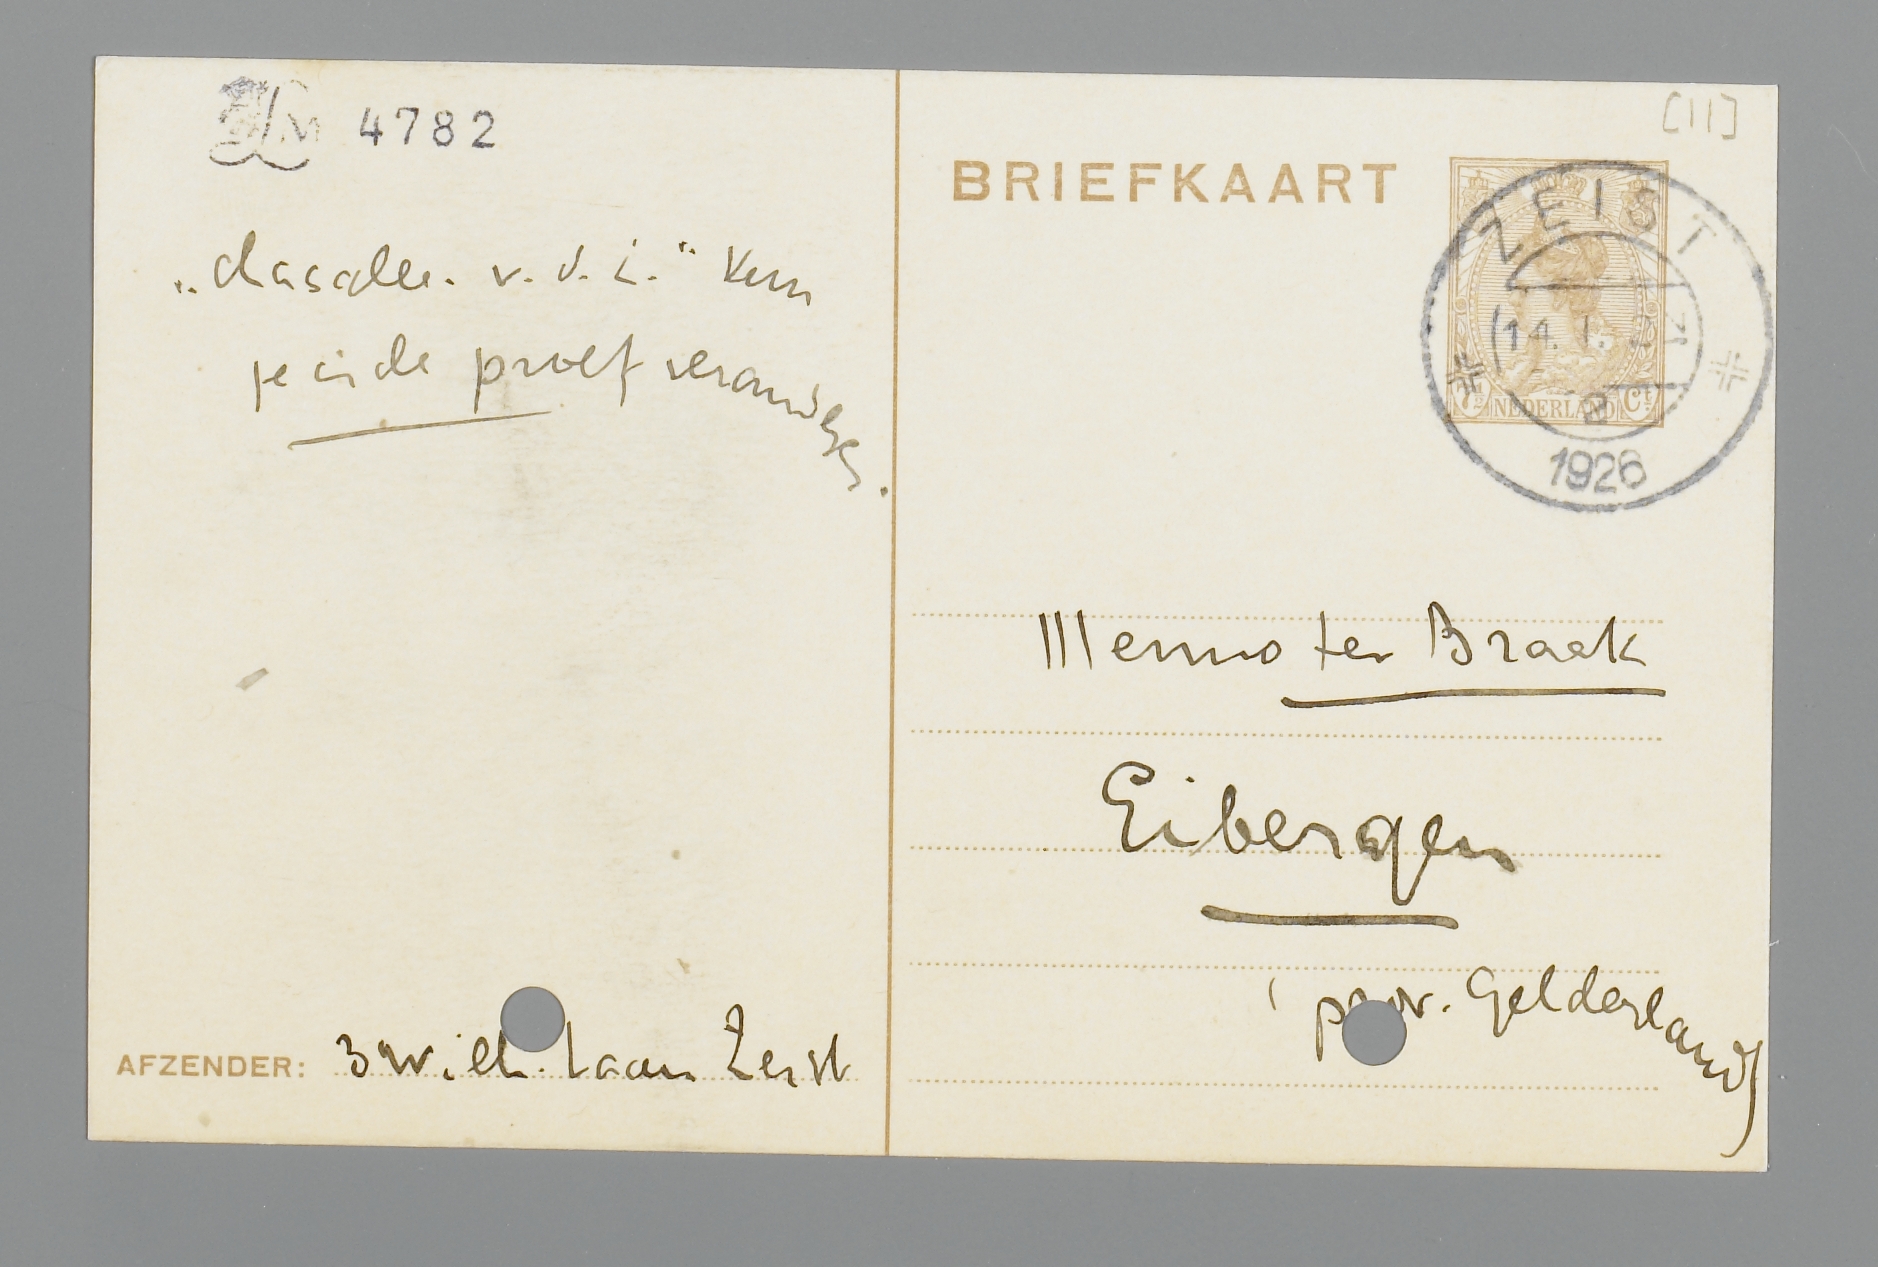 LM 4782
[11]
BRIEFKAART
ZEIST
14. 1. 21
2
1926
7½ NEDERLAND Ct
v. d. L." kun
je in de proef veranderen.
Menno ter Braak
Eibergen
(prov. Gelderland)
AFZENDER: 3 Wilh. laan Zeist